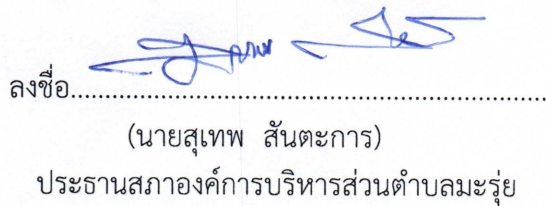 ลงชื่อ........................................................................
(นายสุเทพ สันตะการ)
ประธานสภาองค์การบริหารส่วนตำบลมะรุ่ย